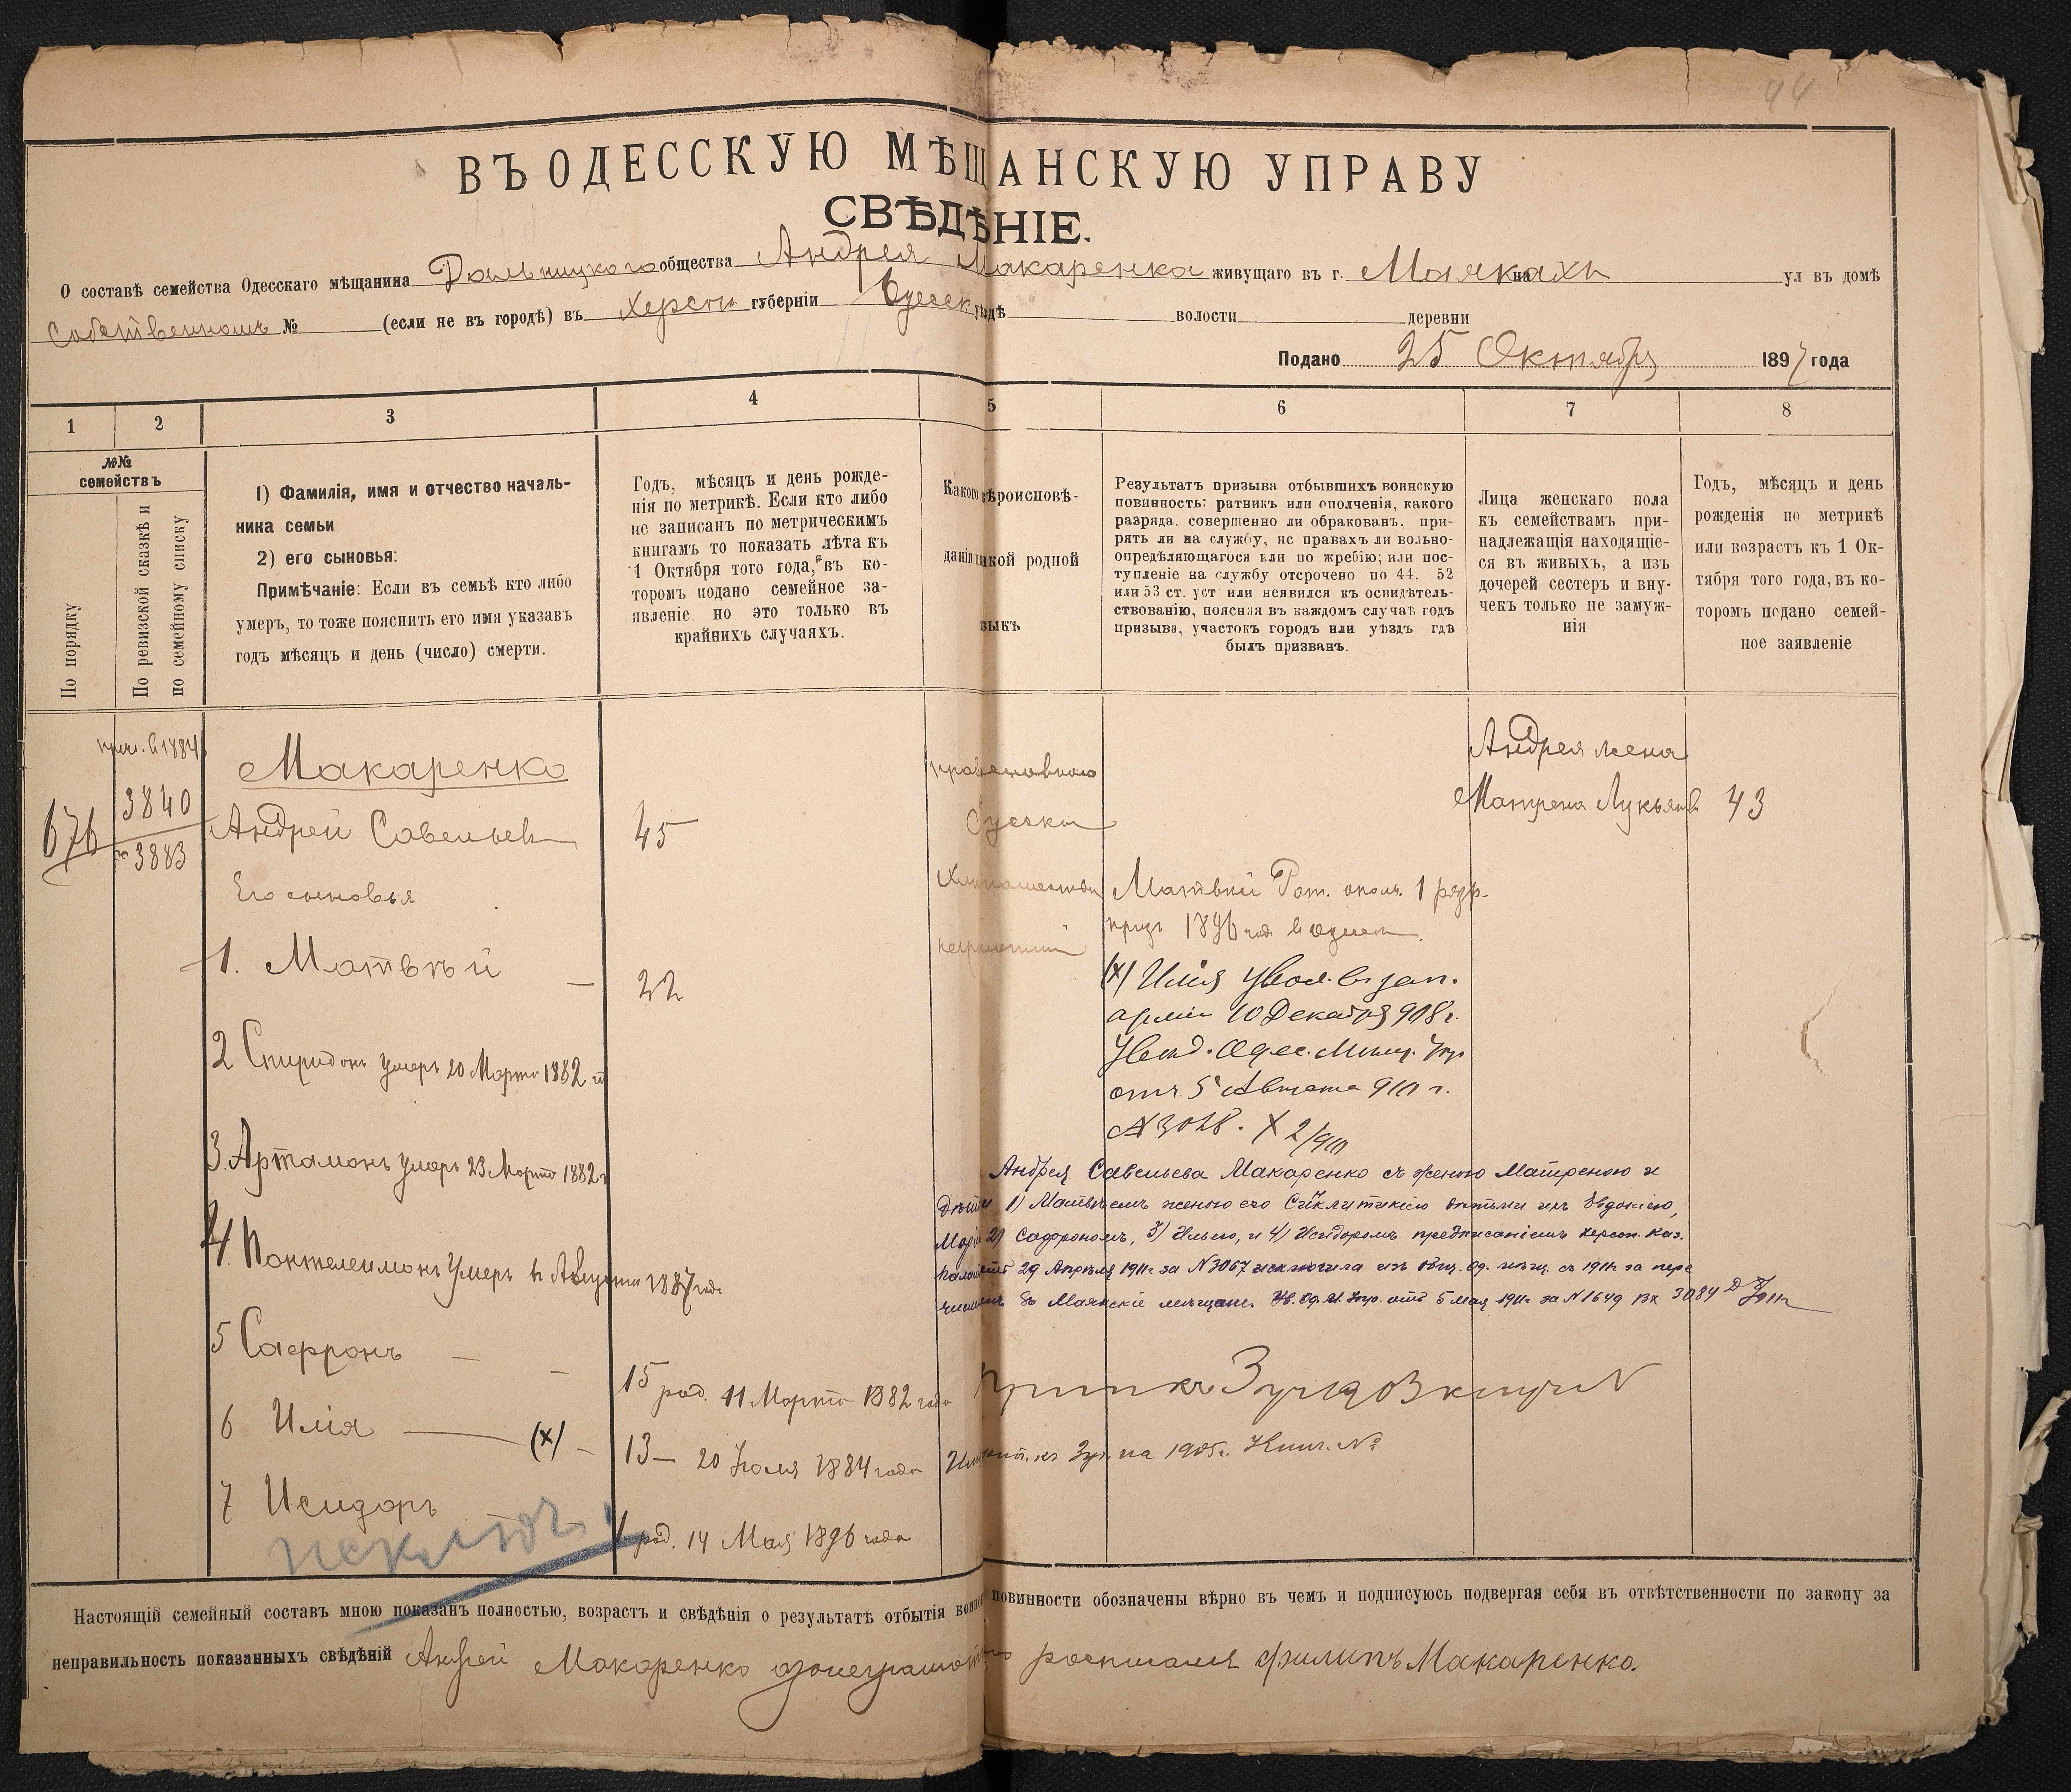 44
ВЪ ОДЕССКУЮ МѢЩАНСКУЮ УПРАВУ
СВѢДѢНІЕ.
О составѣ семейства Одесскаго мѣщанина Дальницкаго общества Андрея Макаренка живущаго въ г. Маякахъ на ул въ домѣ
Собственномъ № (если не въ городѣ) въ Херсон губерніи Одесск уѣздѣ волости деревни
Подано 25 Октября 1897 года
1 2 3 4 5 6 7 8
№№ семействъ
По порядку
По ревизской сказкѣ и
по семейному списку
1) Фамилія, имя и отчество началь-
ника семьи
2) его сыновья:
Примѣчаніе: Если въ семьѣ кто либо
умеръ, то тоже пояснить его имя указавъ
годъ мѣсяцъ и день (число) смерти.
Годъ, мѣсяцъ и день рожде-
нія по метрикѣ. Если кто либо
не записанъ по метрическимъ
книгамъ то показать лѣта къ
1 Октября того года, въ ко-
торомъ подано семейное за-
явленіе но это только въ
крайнихъ случаяхъ.
Какого вѣроисповѣ-
данія и какой родной
языкъ
Результатъ призыва отбывшихъ воинскую
повинность: ратникъ или ополченія, какого
разряда. совершенно ли обракованъ, при-
рятъ ли на службу, нс правахъ ли вольно-
опредѣляющагося или по жребію; или пос-
тупленіе на службу отсрочено по 44. 52
или 53 ст. уст или неявился къ освидѣтель-
ствованію, поясняя въ каждомъ случаѣ годъ
призыва, участокъ городъ или уѣздъ гдѣ
былъ призванъ.
Лица женскаго пола
къ семействамъ при-
надлежащія находящіе-
ся въ живыхъ, а изъ
дочерей сестеръ и вну-
чекъ только не замуж-
нія
Годъ, мѣсяцъ и день
рожденія по метрикѣ
или возрастъ къ 1 Ок-
тября того года, въ ко-
торомъ подано семей-
ное заявленіе
прич. в 1884
676
3840
3883
Макаренко
Андрей Савельев 45
Его сыновья
1. Матвѣй — 22
2 Спиридонъ умеръ 20 Марта 1882 г
3. Артамонъ умеръ 23 Марта 1882 г
4. Пантелеимонъ умеръ в Августа 1887 года
5 Сафронъ — — 15 род. 11 Марта 1882 года
6 Илія — (х) — 13 — 20 Юля 1884 года
7 Исидоръ 1 род. 14 Мая 1896 года
исключ.
православного
Руская
Матвѣй Рат. ополч. 1 разр.
приз 1896 года в Одесск
(х) Илія увол. въ зап.
арміи 10 Декабря 908 г.
Увѣд. Одес. Мѣщ. Упр
отъ 5 Августа 910 г.
Андрея жена
Матрена Лукьянов 43
Андрея Савельева Макаренко съ женою Матреною и
дѣтьми 1) Матвѣемъ женою его Сиклитикіею дѣтьми ихъ Евдокіею,
Маріей 2) Сафрономъ, 3) Ильею, и 4) Исидоромъ предписаніемъ Херсон. Каз.
Палаты отъ 29 Апрѣля 1911 г за N 3067 исключила изъ общ. Од. мѣщ. съ 1911 г за пере
численіемъ въ Маякскіе мѣщане. Ув. Од. М. Упр. отъ 5 мая 1911 г за N 1649 вх 3084
на 1905 г. №
Настоящій семейный составъ мною показанъ полностью, возрастъ и свѣдѣнія о результатѣ отбытія воинской повинности обозначены вѣрно въ чемъ и подписуюсь подвергая себя въ отвѣтственности по закону за
неправильность показанныхъ свѣдѣній Андрей Макаренко а за неграмотного росписался Филипъ Макаренко.